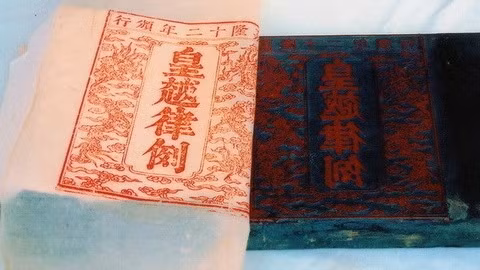 隆十二年頒行
皇越律例
皇越律例